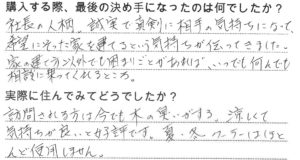 購入する際、最後の決め手になったのは何でしたか?
社長の人柄。誠実で真剣に相手の気持ちになって、
希望にそった家を建てるという気持ちが伝ってきました。
家の建て方以外でも困りごとがあれば、いつでも何んでも
相談に乗ってくれるところ。
実際に住んでみてどうでしたか?
訪問される方は今でも木の匂いがする。涼しくて
気持ちが良いと好評です。夏・冬 クーラーはほと
んど使用しません。